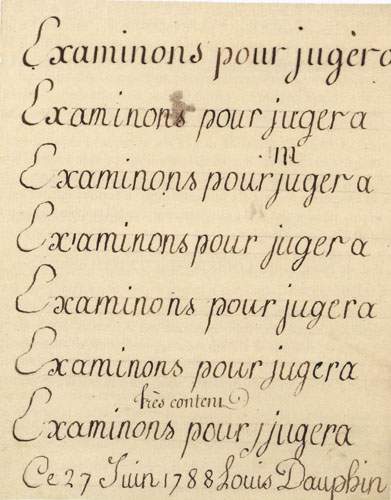 Examinons pour jugèra
Examinons pour jugera
m
Examinons pour juger a
Examinons pour juger a
Examinons pour jugera
Examinons pour jugera
très content
Examinons pour jjugera
Ce 27 Juin 1788 Louis Dauphin